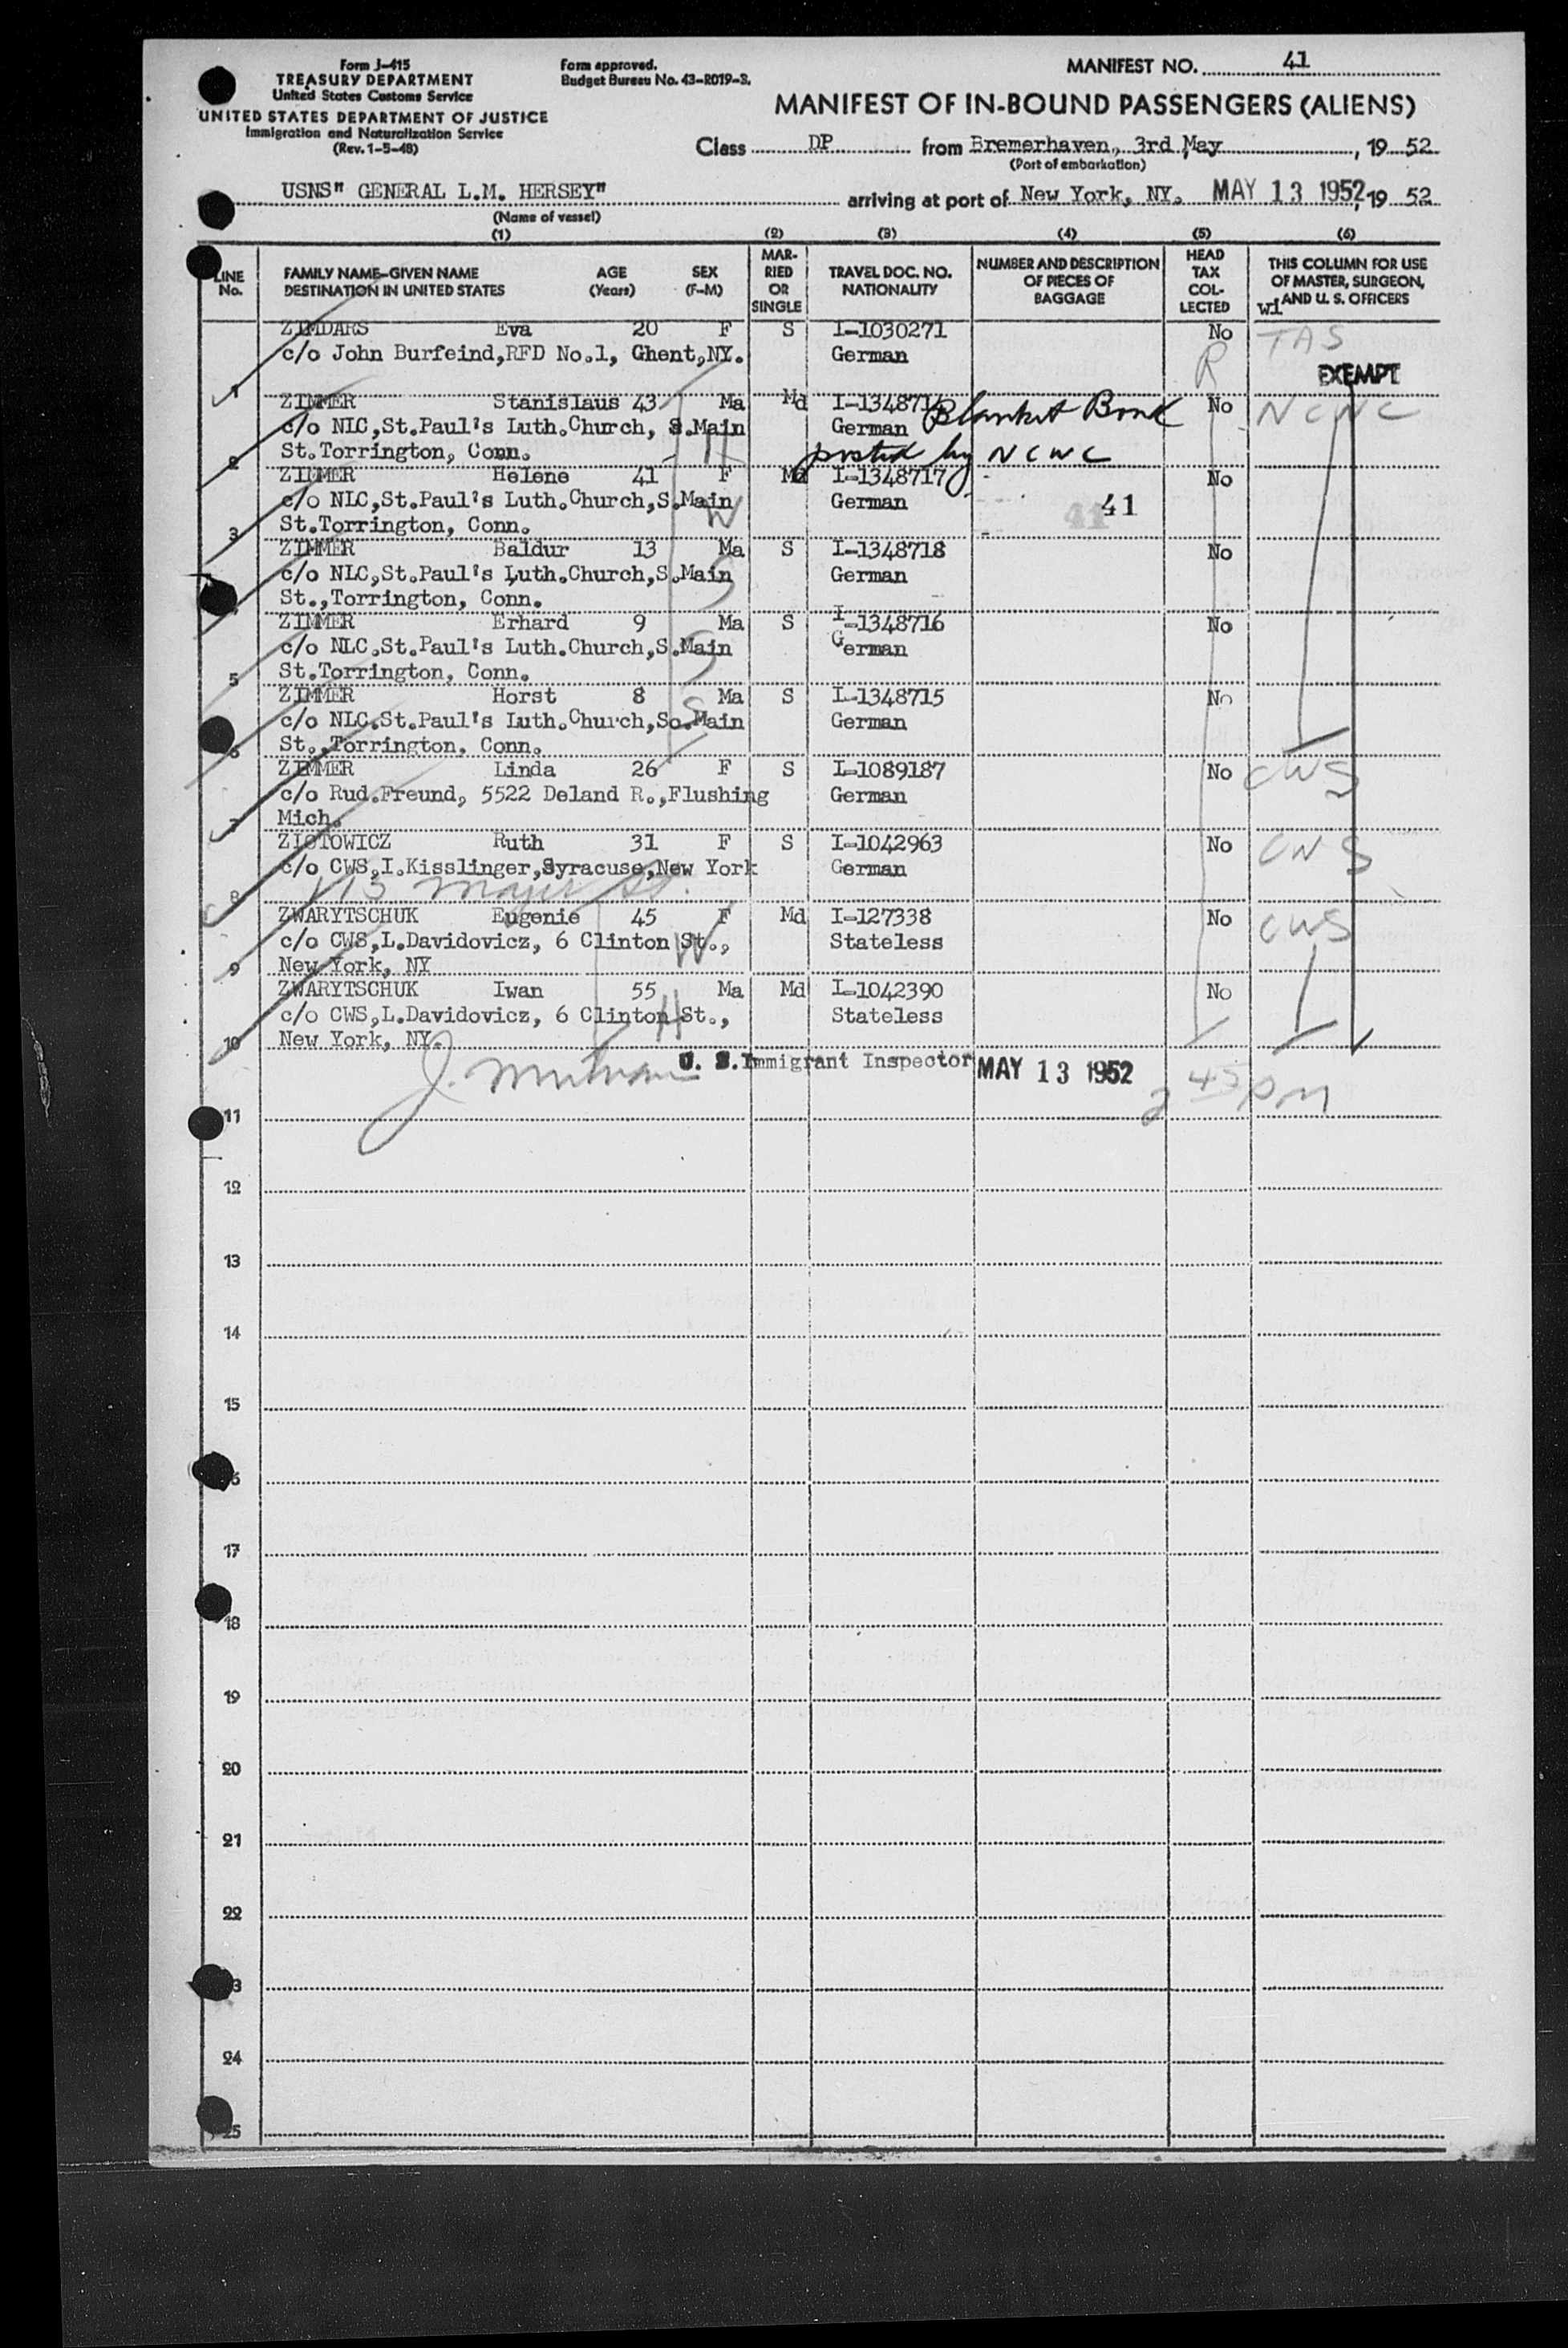 Form I-415
TREASURY DEPARTMENT
United States Customs Service
UNITED STATES DEPARTMENT OF JUSTICE
Immigration and Naturalization Service
(Rev. 1-5-48)
Form approved.
Budget Bureau No. 43-R019-3.
MANIFEST NO. 41
MANIFEST OF IN-BOUND PASSENGERS (ALIENS)
Class DP from Bremerhaven, 3rd May, 19 52
(Port of embarkation)
USNS" GENERAL L.M. HERSEY" arriving at port of New York, NY. MAY 13 1952, 19 52
(Name of vessel)
(1) (2) (3) (4) (5) (6)
LINE No. FAMILY NAME-GIVEN NAME DESTINATION IN UNITED STATES AGE (Years) SEX (F-M) MARRIED OR SINGLE TRAVEL DOC. NO. NATIONALITY NUMBER AND DESCRIPTION OF PIECES OF BAGGAGE HEAD TAX COLLECTED THIS COLUMN FOR USE OF MASTER, SURGEON, AND U. S. OFFICERS
wi
ZIMDARS Eva 20 F S I-1030271 No TAS
c/o John Burfeind,RFD No.1, Ghent,NY. German R EXEMPT
1
ZIMMER Stanislaus 43 Ma Md I-1348714 Blanket Bond No NCWC
c/o NLC,St.Paul's Luth.Church, S.Main German
St.Torrington, Conn. H posted by NCWC
2
ZIMMER Helene 41 F Md I-1348717 No
c/o NLC,St.Paul's Luth.Church,S.Main German 41 41
St.Torrington, Conn. W
3
ZIMMER Baldur 13 Ma S I-1348718 No
c/o NLC,St.Paul's Luth.Church,S.Main German
St.,Torrington, Conn. S
4
ZIMMER Erhard 9 Ma S I-1348716 No
c/o NLC.St.Paul's Luth.Church,S.Main German
St.Torrington, Conn. S
5
ZIMMER Horst 8 Ma S I-1348715 No
c/o NLC.St.Paul's Luth.Church,So.Main German
St.,Torrington, Conn. S
6
ZIMMER Linda 26 F S I-1089187 No CWS
c/o Rud.Freund, 5522 Deland R.,Flushing German
Mich.
7
ZIOTOWICZ Ruth 31 F S I-1042963 No CWS
c/o CWS,I.Kisslinger,Syracuse,New York German
113 St.
8
ZWARYTSCHUK Eugenie 45 F Md I-127338 No CWS
c/o CWS,L.Davidovicz, 6 Clinton St., Stateless
New York, NY W
9
ZWARYTSCHUK Iwan 55 Ma Md I-1042390 No
c/o CWS,L.Davidovicz, 6 Clinton St., Stateless
New York, NY. H
10
J. U. S. Immigrant Inspector MAY 13 1952 2 45 PM
11
12
13
14
15
16
17
18
19
20
21
22
23
24
25